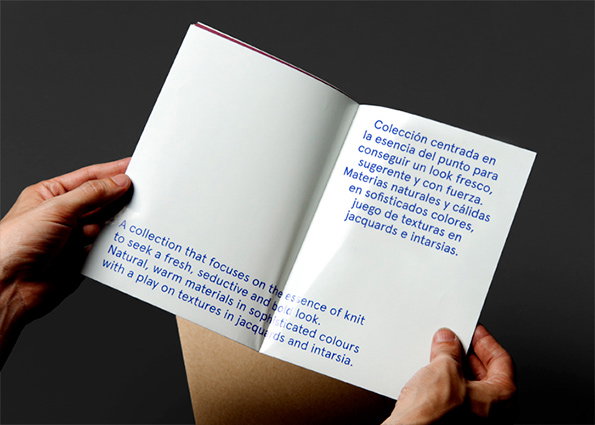 Colección centrada en
la esencia del punto para
conseguir un look fresco,
sugerente y con fuerza.
Materias naturales y cálidas
en sofisticados colores,
juego de texturas en
jacquards e intarsias.
A collection that focuses on the essence of knit
to seek a fresh, seductive and bold look.
Natural, warm materials in sophisticated colours
with a play on textures in jacquards and intarsia.